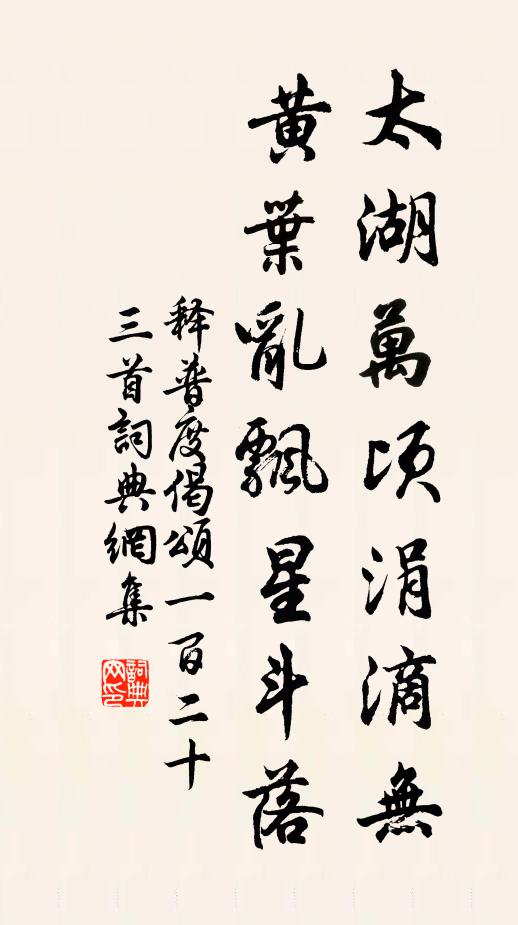 太湖萬頃涓滴無
黃葉亂飄星斗落
释普度偈頌一百二十
三首詞典網集
詞典網印